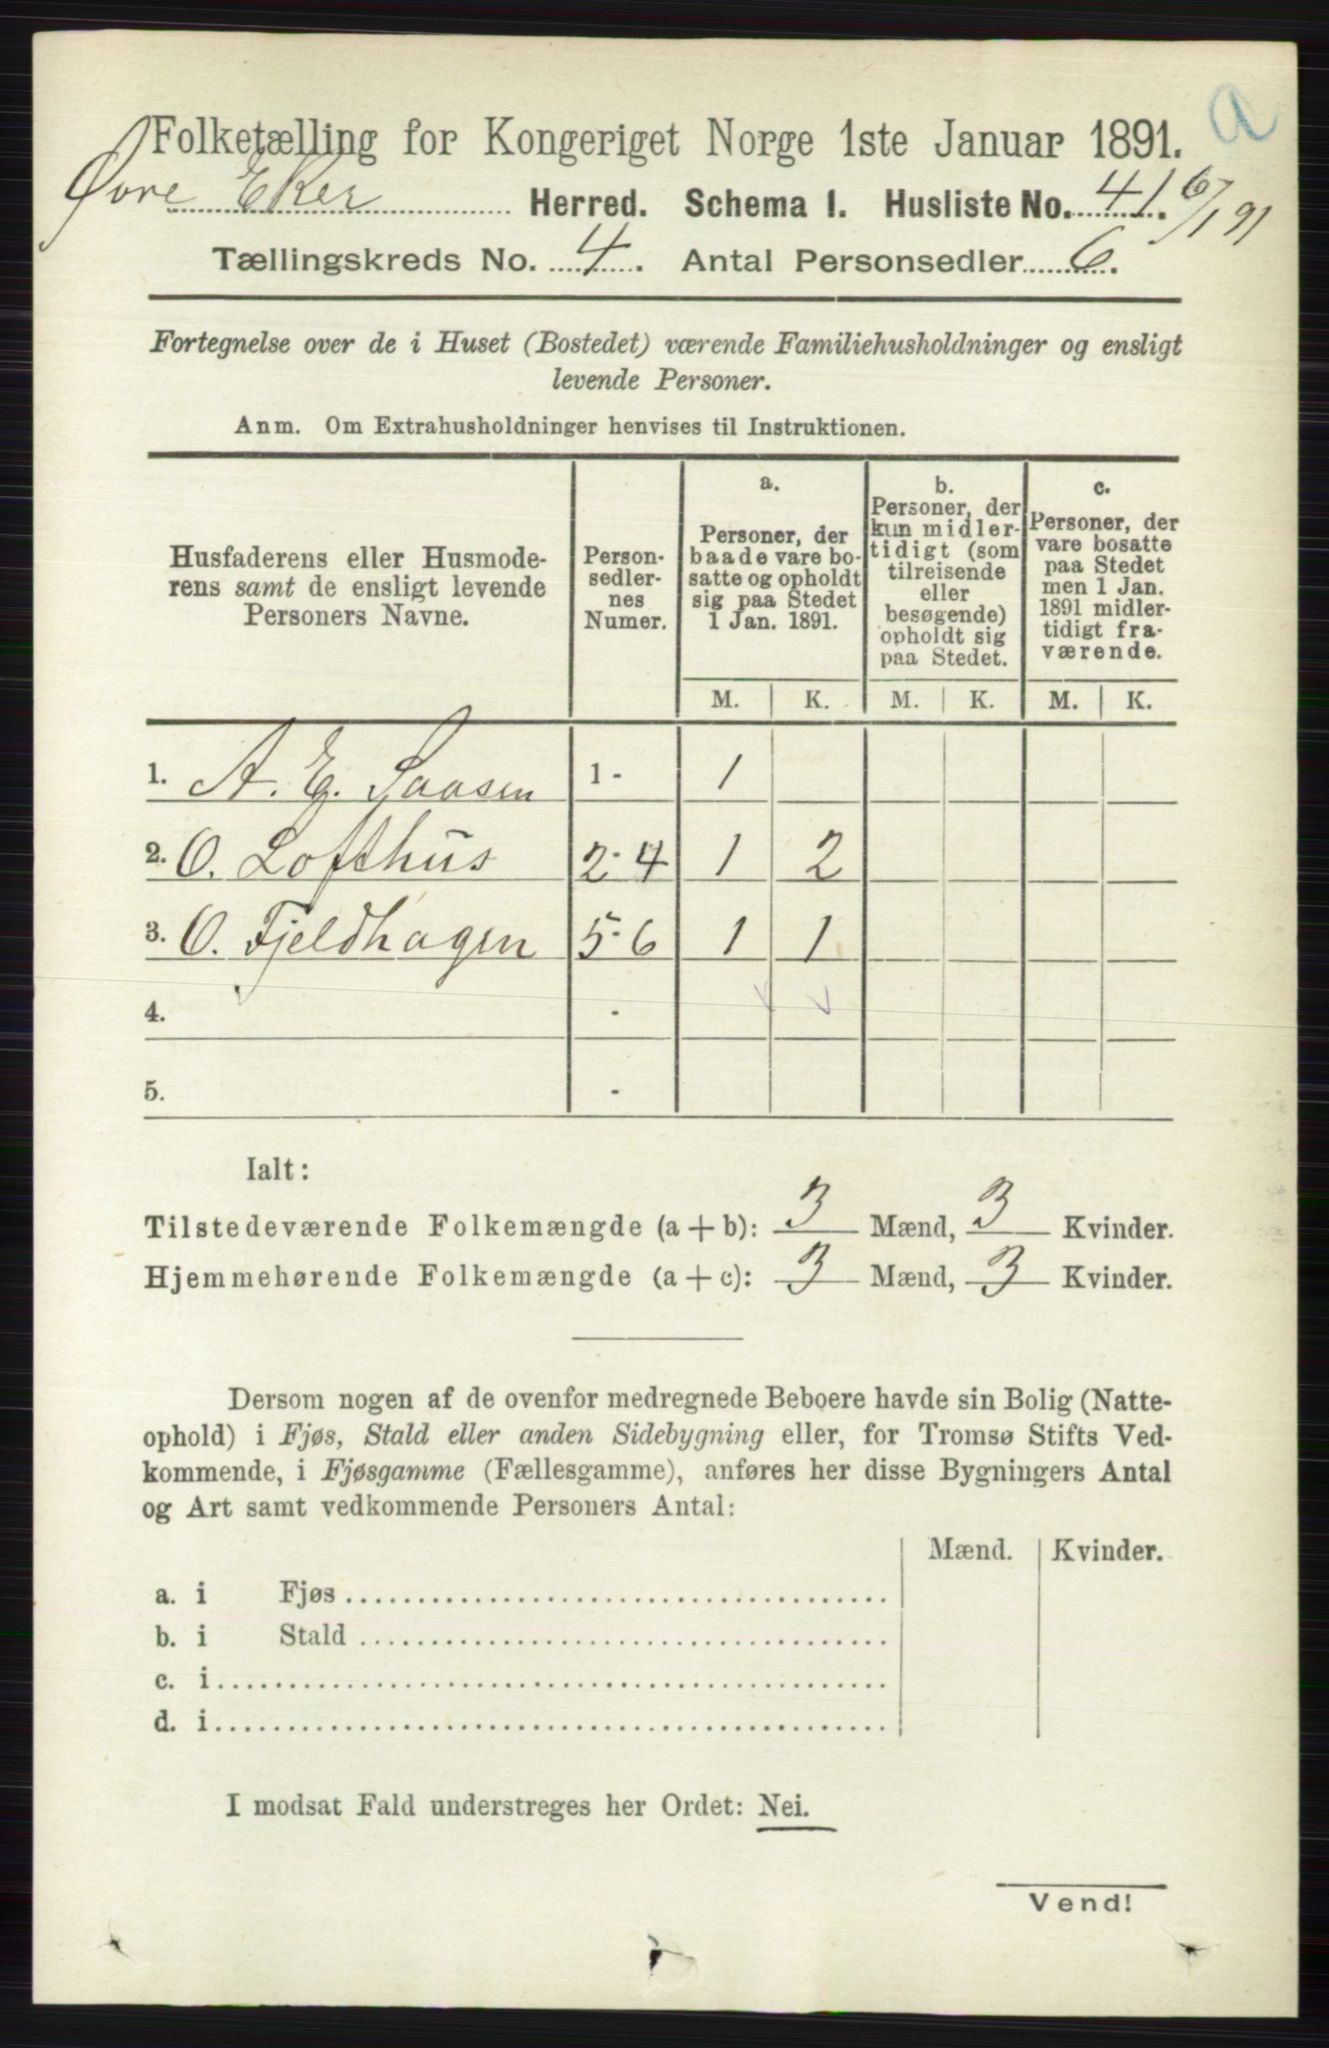 a
Folketælling for Kongeriget Norge 1ste Januar 1891.
Øvre Eker Herred. Schema I. Husliste No. 41. 6/1 91
Tællingskreds No. 4. Antal Personsedler 6.
Fortegnelse over de i Huset (Bostedet) værende Familiehusholdninger og ensligt
levende Personer.
Anm. Om Extrahusholdninger henvises til Instruktionen.
Husfaderens eller Husmode-
rens samt de ensligt levende
Personers Navne.
Person-
sedler-
nes
Numer.
a.
Personer, der
baade vare bo-
satte og opholdt
sig paa Stedet
1 Jan. 1891.
b.
Personer, der
kun midler-
tidigt (som
tilreisende
eller
besøgende)
opholdt sig
paa Stedet.
c.
Personer, der
vare bosatte
paa Stedet
men 1 Jan.
1891 midler-
tidigt fra-
værende.
M. K. M. K. M. K.
1. A. E. Saasen 1 - 1
2. O. Lofthus 2 - 4 1 2
3. O. Fjeldhagen 5 - 6 1 1
4. -
5. -
Ialt:
Tilstedeværende Folkemængde (a + b): 3 Mænd, 3 Kvinder.
Hjemmehørende Folkemængde (a + c): 3 Mænd, 3 Kvinder.
Dersom nogen af de ovenfor medregnede Beboere havde sin Bolig (Natte-
ophold) i Fjøs, Stald eller anden Sidebygning eller, for Tromsø Stifts Ved-
kommende, i Fjøsgamme (Fællesgamme), anføres her disse Bygningers Antal
og Art samt vedkommende Personers Antal:
Mænd. Kvinder.
a. i Fjøs
b. i Stald
c. i
d. i
I modsat Fald understreges her Ordet: Nei.
Vend!